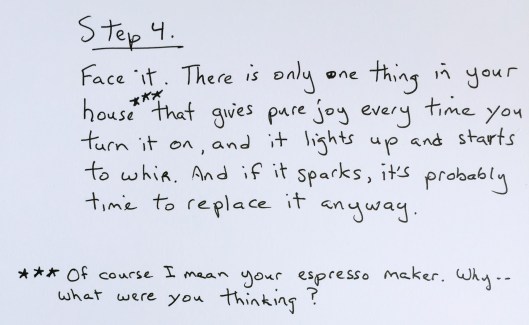 Step 4.
Face it. There is only one thing in your
house*** that gives pure joy every time you
turn it on, and it lights up and starts
to whir. And if it sparks, it's probably
time to replace it anyway.
*** Of course I mean your espresso maker. Why--
what were you thinking?